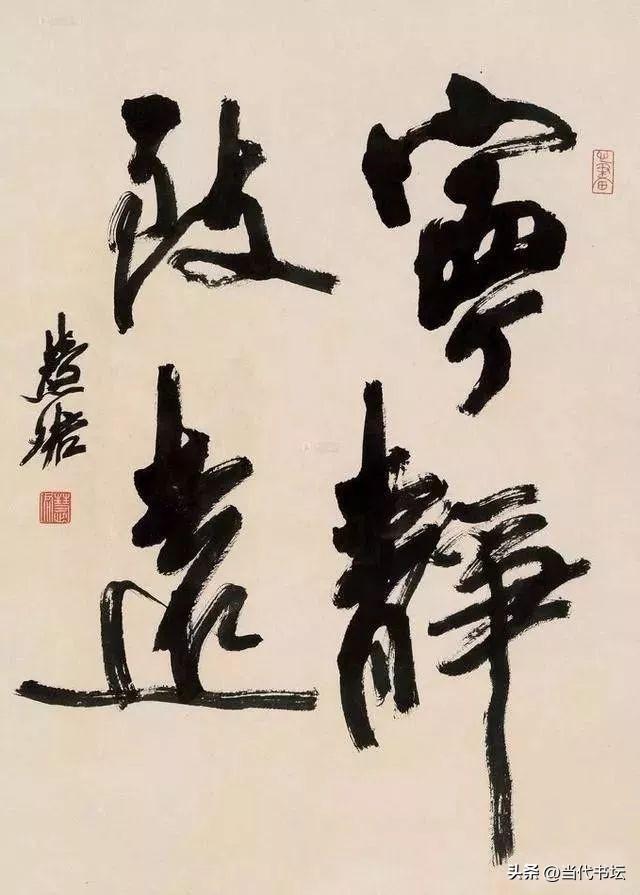 寧靜
致遠
慧珺
头条 @当代书坛